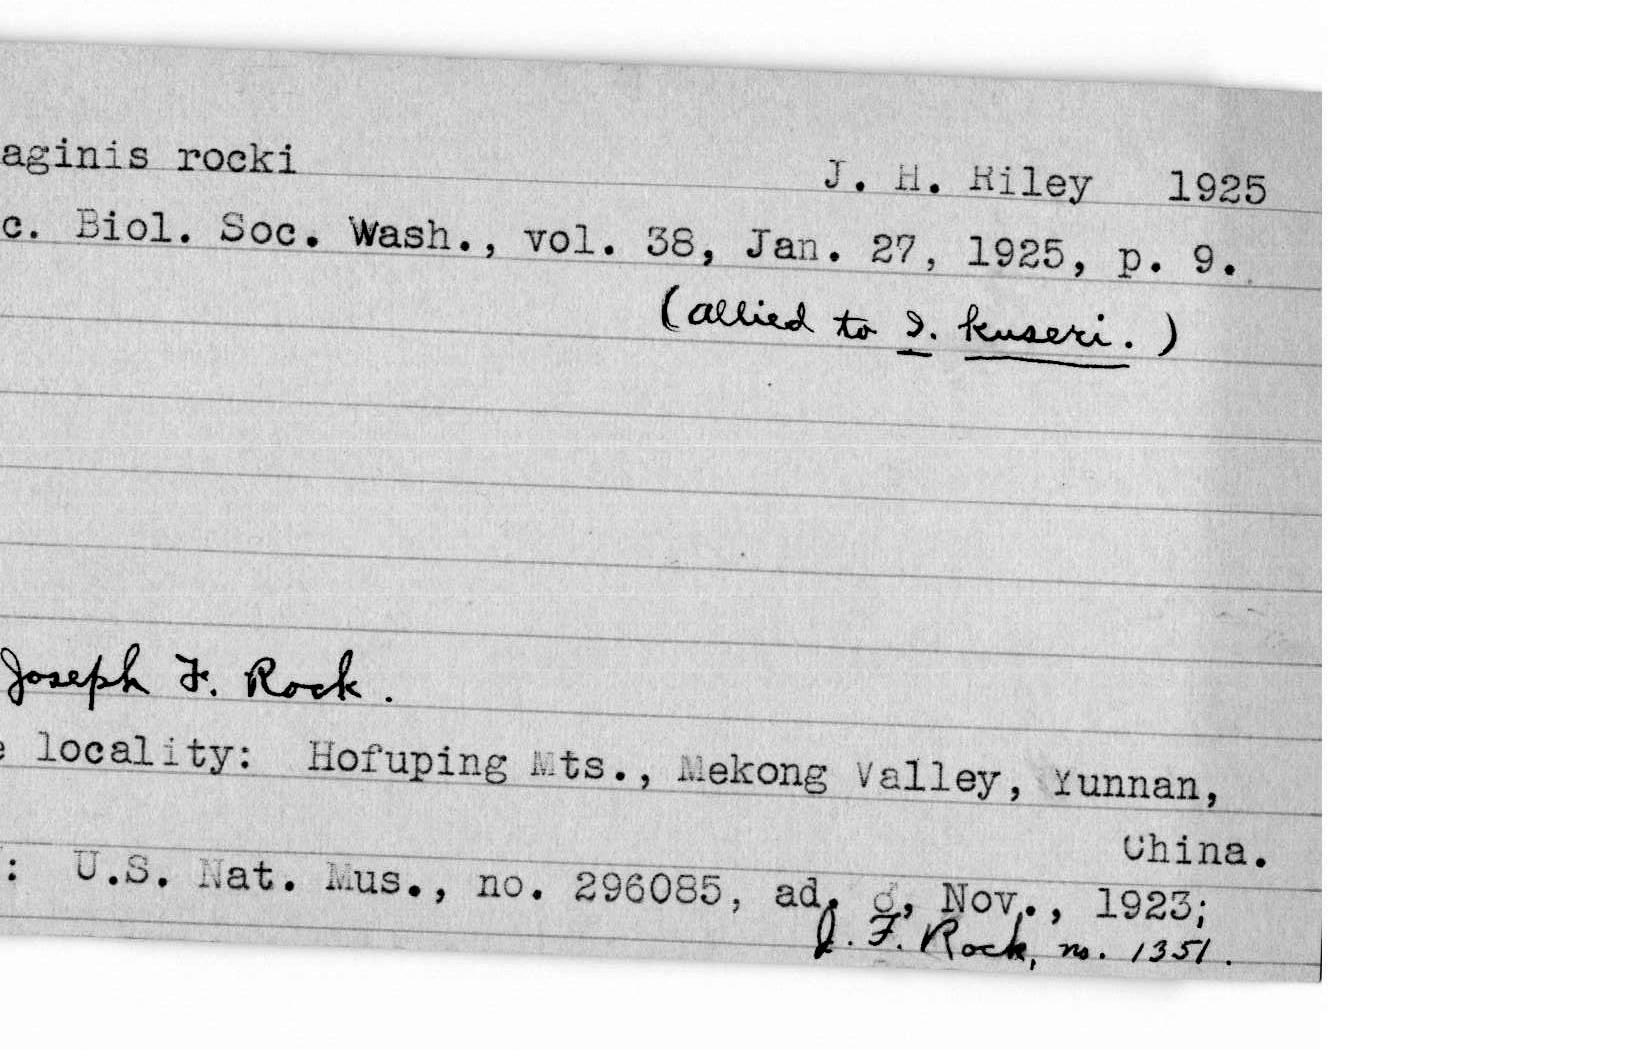 aginis rocki J. H. Riley 1925
c. Biol. Soc. Wash., vol. 38, Jan. 27, 1925, p. 9.
(allied to I. kuseri.)
Joseph F. Rock.
e locality: Hofuping Mts., Mekong Valley, Yunnan,
China.
: U.S. Nat. Mus., no. 296085, ad. Nov., 1923;
J. F. Rock, no. 1351.